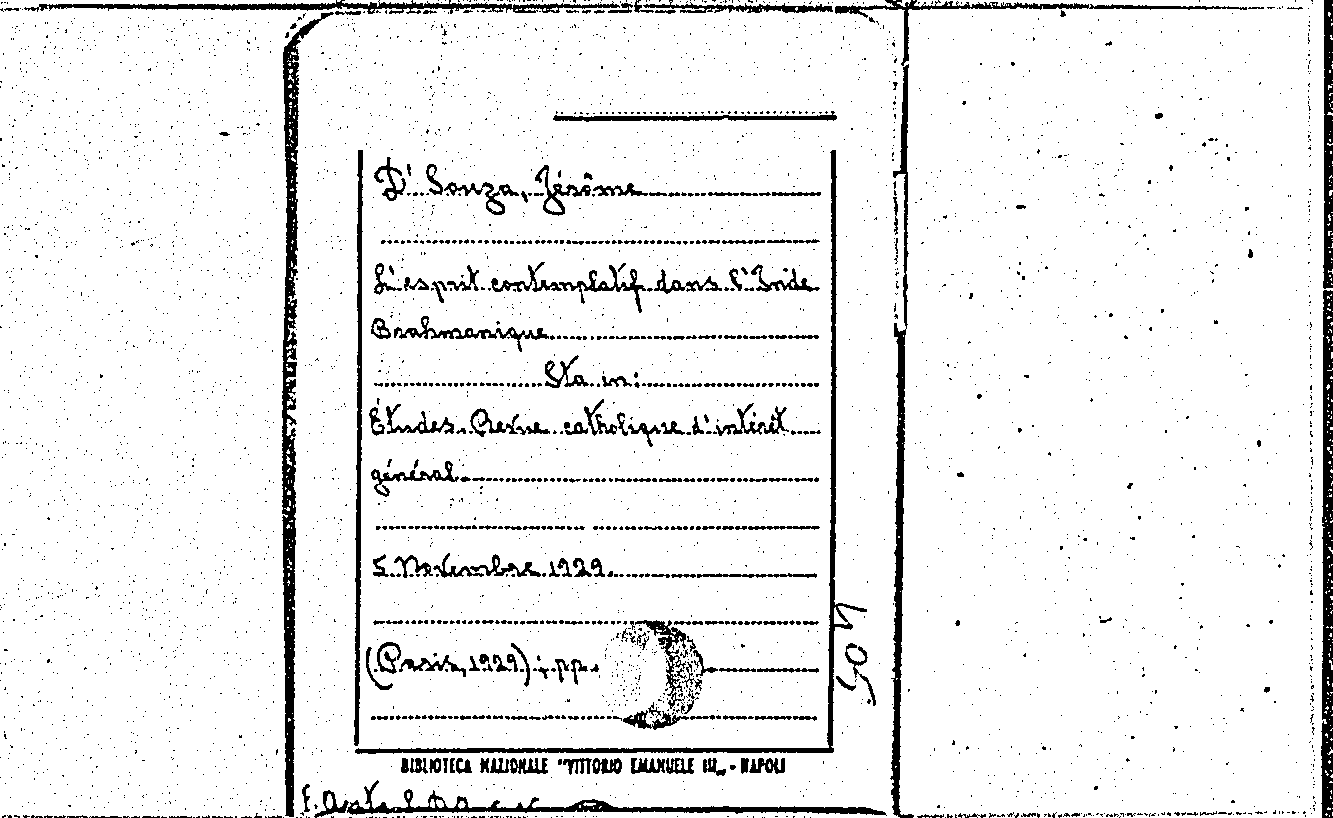 D'Souza, Jérôme
L'esprit contemplatif dans l'Inde
Brahmanique
Sta in:
Études. Revue catholique d'intérêt
général.
5 Novembre 1929.
(Paris, 1929); pp.
BIBLIOTECA NAZIONALE "VITTORIO EMANUELE III„ - NAPOLI